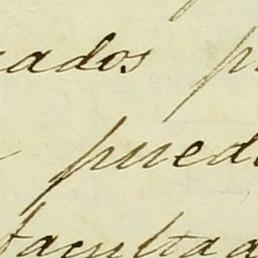 ados p
pued
faculta